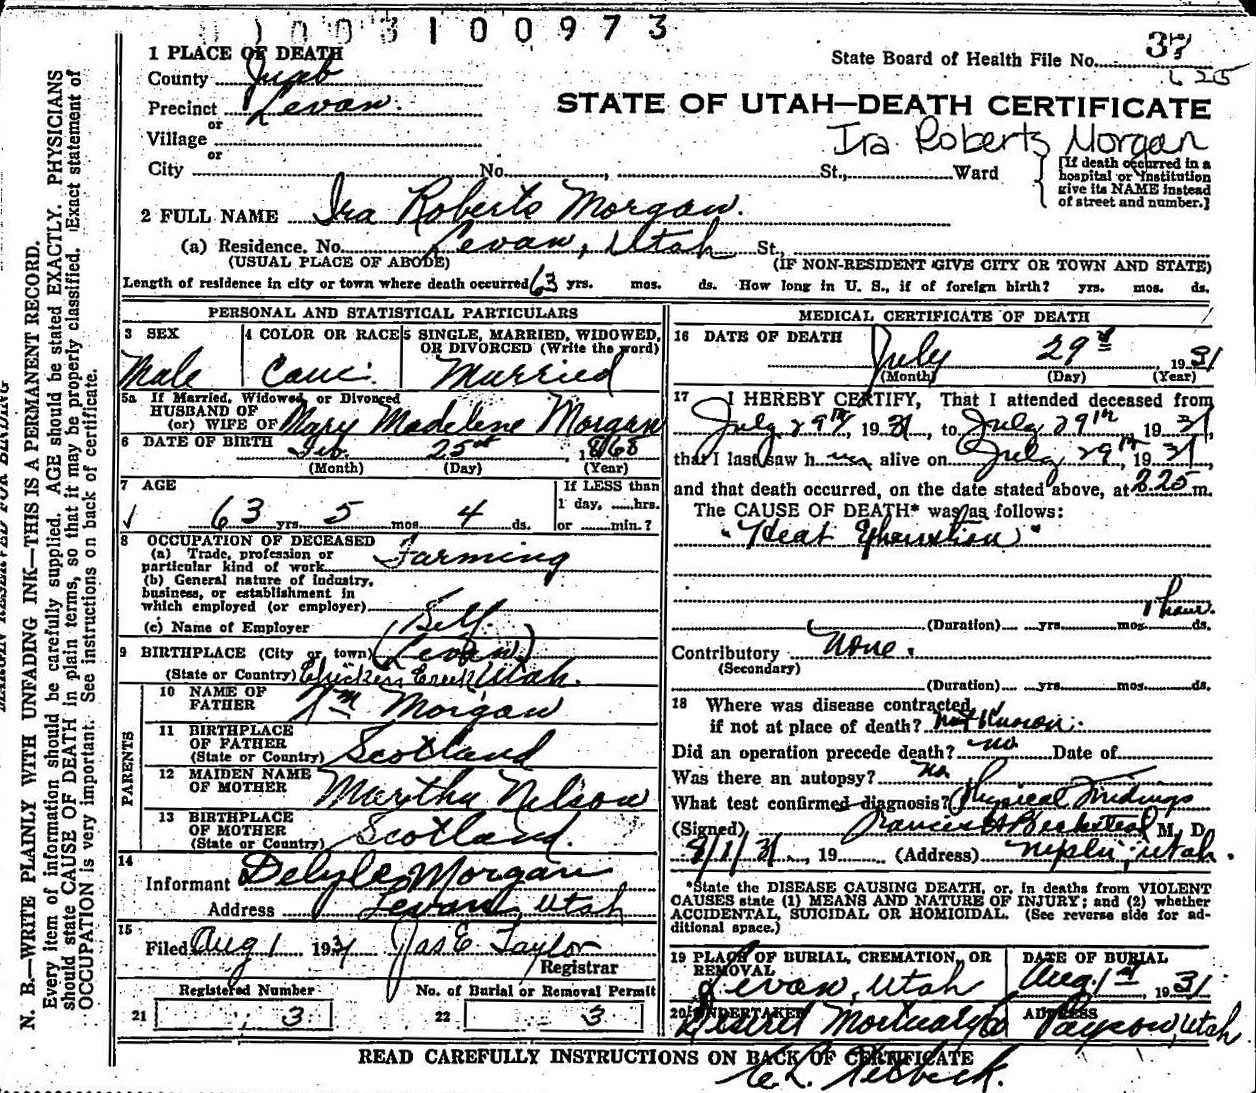 1003100973
1 PLACE OF DEATH
State Board of Health File No. 37
625
County Juab
Precinct Levan.
or
Village
or
City No. , St., Ward
STATE OF UTAH—DEATH CERTIFICATE
Ira Roberts Morgan
[If death occurred in a
hospital or institution
give its NAME instead
of street and number.]
2 FULL NAME Ira Roberts Morgan.
(a) Residence. No. Levan, Utah St.,
(USUAL PLACE OF ABODE) (IF NON-RESIDENT GIVE CITY OR TOWN AND STATE)
Length of residence in city or town where death occurred 63 yrs. mos. ds. How long in U. S., if of foreign birth? yrs. mos. ds.
PERSONAL AND STATISTICAL PARTICULARS
3 SEX 4 COLOR OR RACE 5 SINGLE, MARRIED, WIDOWED,
OR DIVORCED (Write the word)
Male Cauc. Married
5a If Married, Widowed, or Divorced
HUSBAND OF
(or) WIFE OF Mary Madelene Morgan
6 DATE OF BIRTH Feb. 25st, 1868
(Month) (Day) (Year)
7 AGE If LESS than
1 day, hrs.
63 yrs 5 mos 4 ds. or min.?
8 OCCUPATION OF DECEASED
(a) Trade, profession or
particular kind of work Farming
(b) General nature of industry,
business, or establishment in
which employed (or employer)
(c) Name of Employer Self.
9 BIRTHPLACE (City or town) (Levan)
(State or Country) Chicken Creek Utah.
PARENTS
10 NAME OF
FATHER Wm Morgan
11 BIRTHPLACE
OF FATHER
(State or Country) Scotland
12 MAIDEN NAME
OF MOTHER Martha Nilson
13 BIRTHPLACE
OF MOTHER
(State or Country) Scotland.
14
Informant Delyle Morgan
Address Levan, Utah
15
Filed Aug 1 1931 Jas E. Taylor
Registrar
Registered Number No. of Burial or Removal Permit
21 3 22 3
MEDICAL CERTIFICATE OF DEATH
16 DATE OF DEATH
July 29th 1931
(Month) (Day) (Year)
17 I HEREBY CERTIFY, That I attended deceased from
July 29th, 1931, to July 29th 1931,
that I last saw him alive on July 29th, 1931,
and that death occurred, on the date stated above, at 2.25 m.
The CAUSE OF DEATH* was as follows:
"Heat Exhaustion"
1 hour.
(Duration) yrs. mos. ds.
Contributory None.
(Secondary)
(Duration) yrs. mos. ds.
18 Where was disease contracted
if not at place of death? not known.
Did an operation precede death? no Date of
Was there an autopsy? no
What test confirmed diagnosis? Physical Findings
(Signed) Francis H Beckstead M. D.
8/1/31, 19 (Address) Nephi, Utah.
*State the DISEASE CAUSING DEATH, or, in deaths from VIOLENT
CAUSES state (1) MEANS AND NATURE OF INJURY; and (2) whether
ACCIDENTAL, SUICIDAL OR HOMICIDAL. (See reverse side for ad-
ditional space.)
19 PLACE OF BURIAL, CREMATION, OR
REMOVAL
Levan, Utah
DATE OF BURIAL
Aug 1st, 1931
20 UNDERTAKER ADDRESS
Deseret Mortuary Co Payson, Utah
READ CAREFULLY INSTRUCTIONS ON BACK OF CERTIFICATE
MARGIN RESERVED FOR BINDING
N. B.—WRITE PLAINLY WITH UNFADING INK—THIS IS A PERMANENT RECORD.
Every item of information should be carefully supplied. AGE should be stated EXACTLY. PHYSICIANS
should state CAUSE OF DEATH in plain terms, so that it may be properly classified. Exact statement of
OCCUPATION is very important. See instructions on back of certificate.